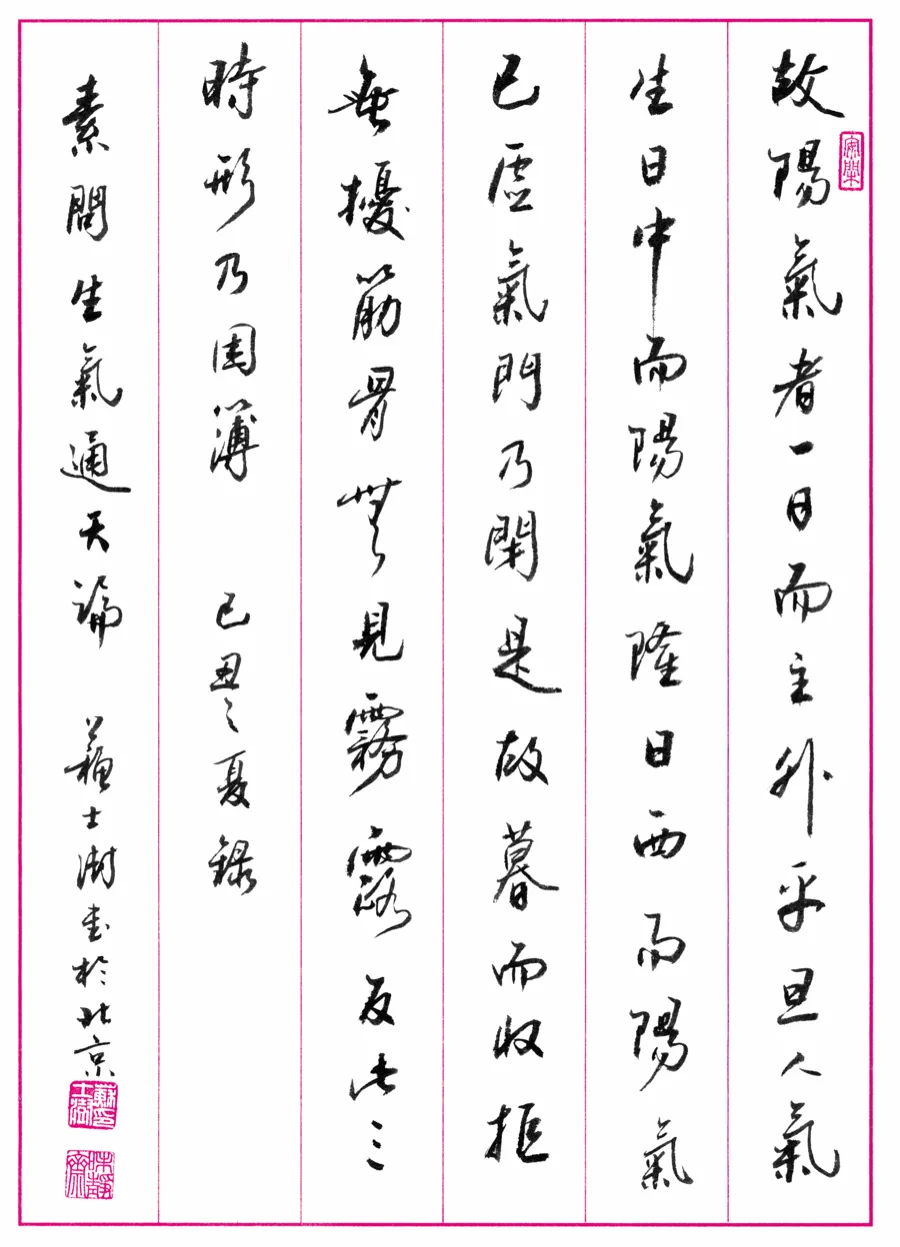 故陽氣者一日而主外平旦人氣
生日中而陽氣隆日西而陽氣
已虛氣門乃閉是故暮而收拒
無擾筋骨無見霧露反此三
時形乃困薄 己丑之夏録
素問生氣通天論 蘇士澍書於北京
蘇士澍印
味靜齋